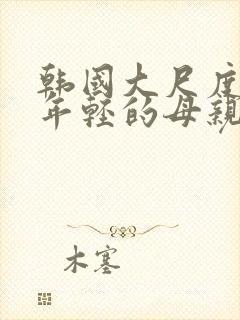 韩国大尺度
年轻的母亲
木塞